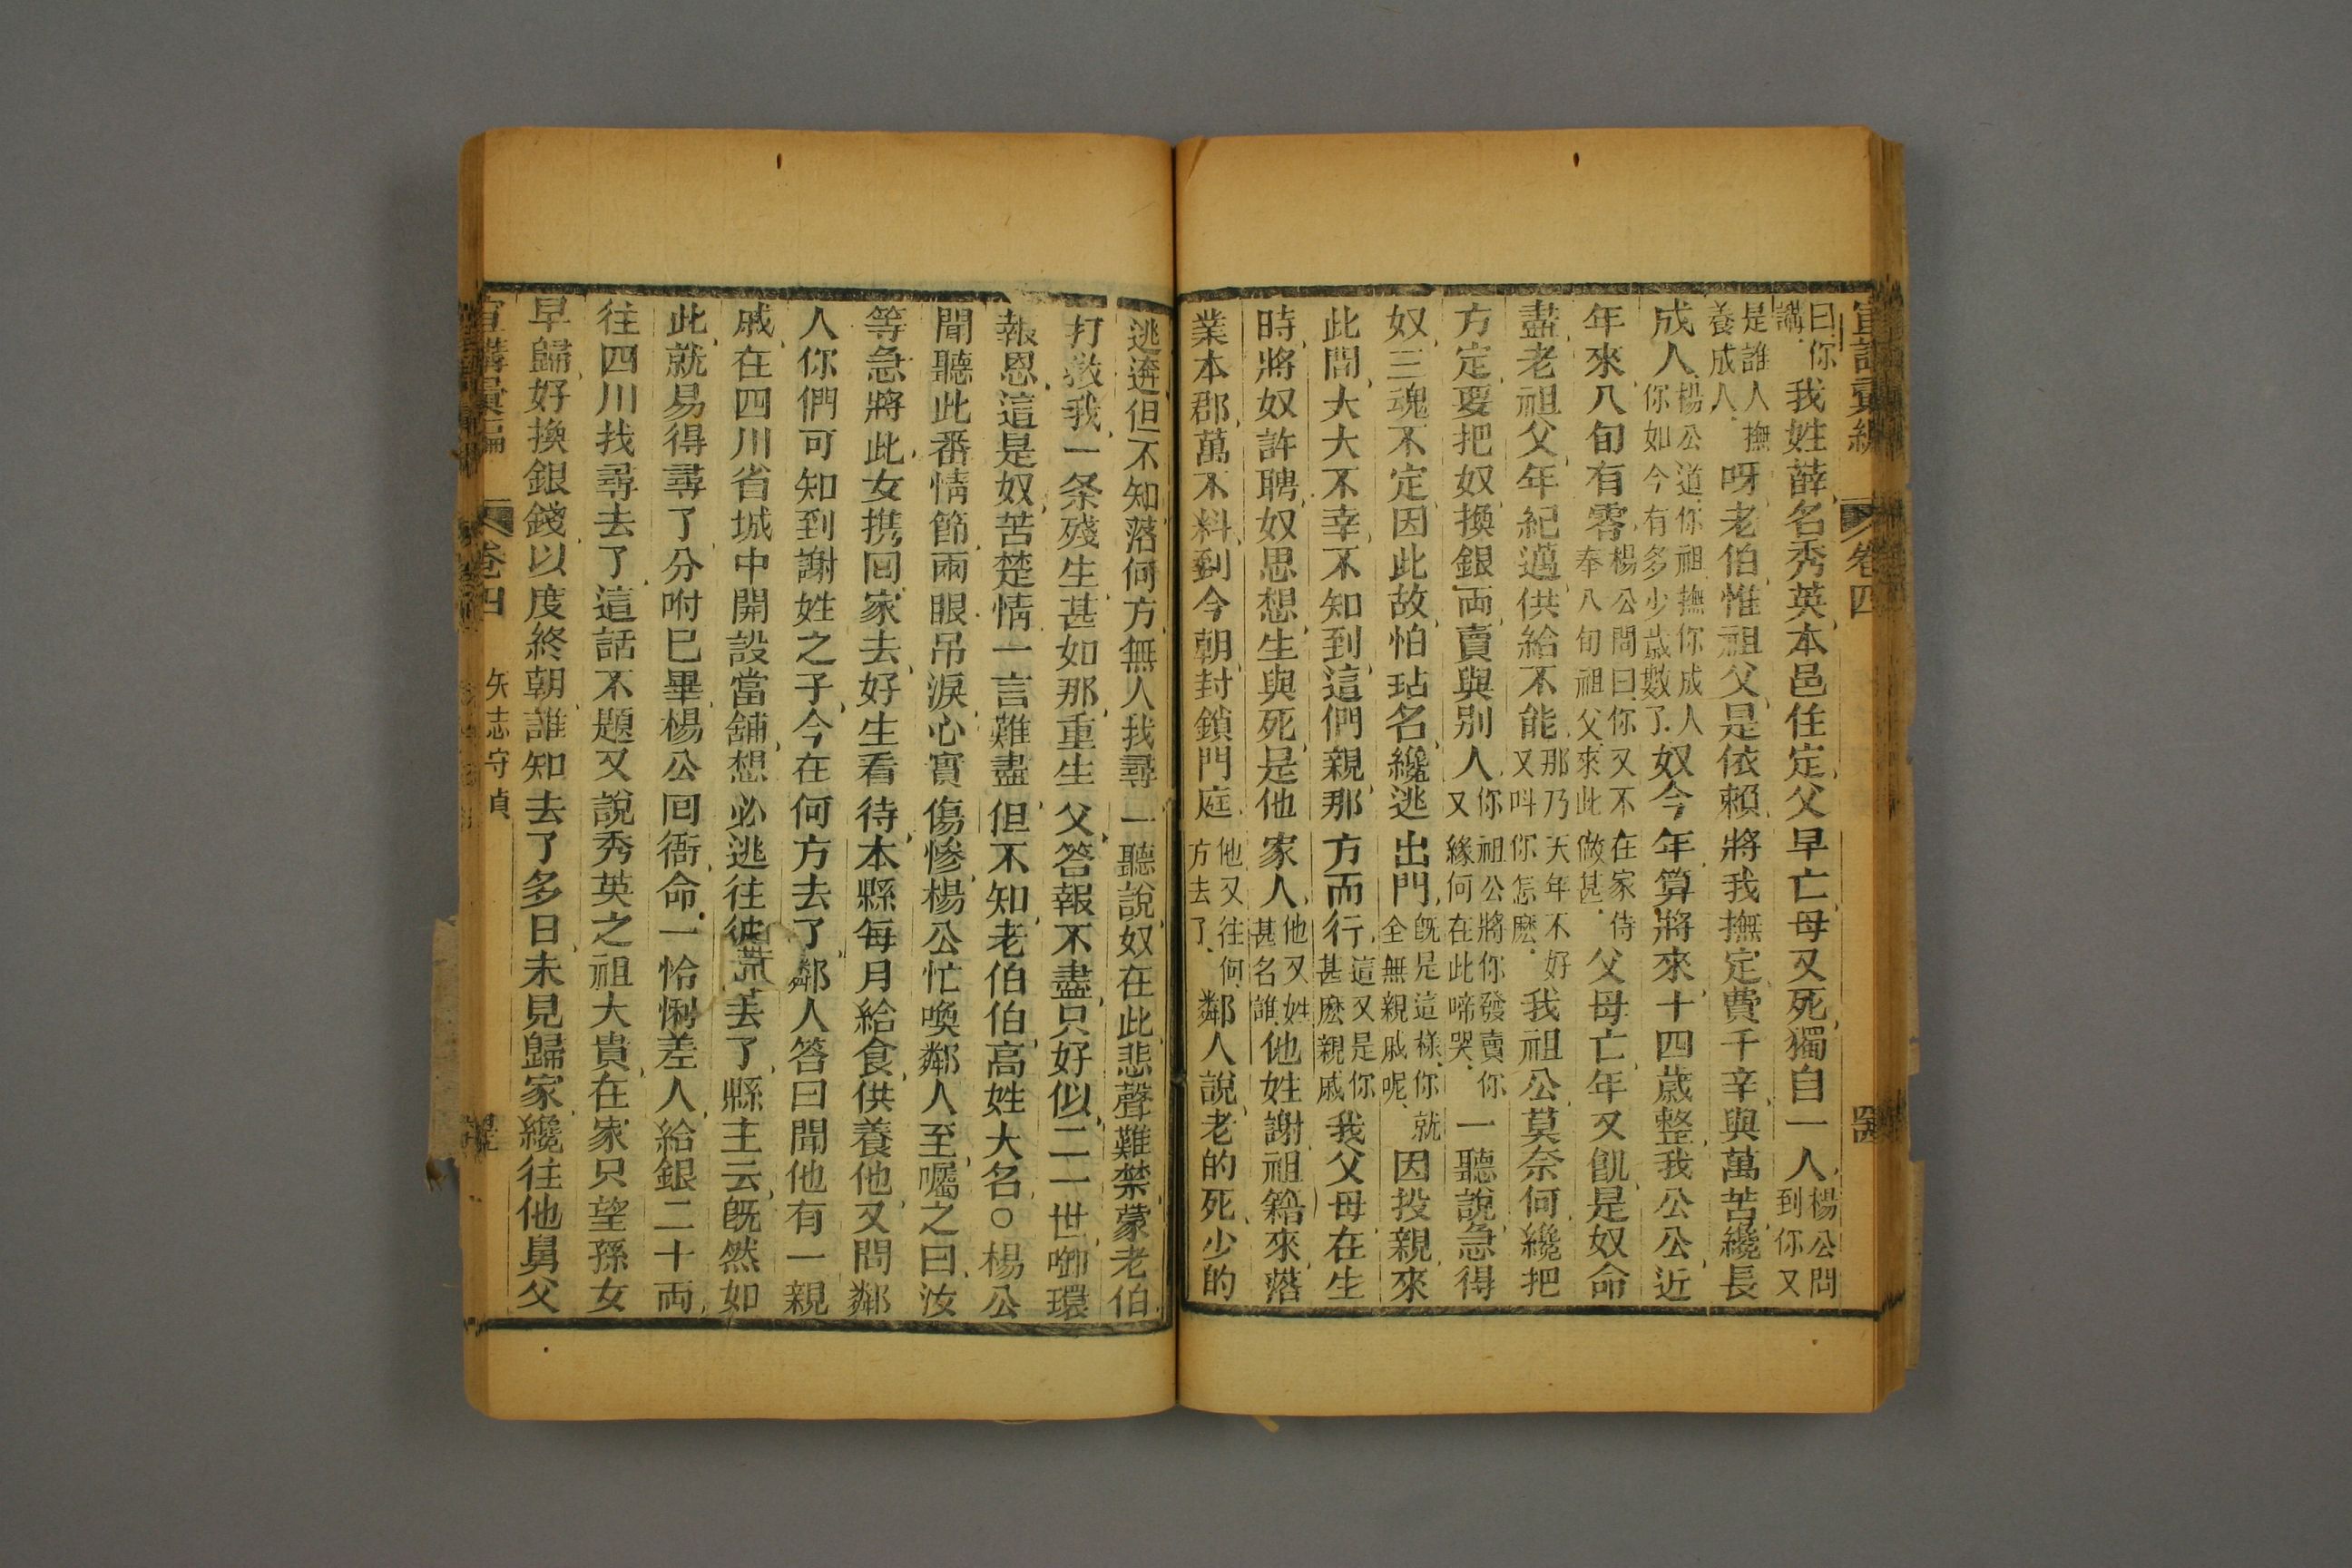 宣講彙編 卷四
曰你講 我姓薛名秀英本邑住定父早亡母又死獨自一人 楊公問到你又
是誰人撫養成人 呀老伯惟祖父是依賴將我撫定費千辛與萬苦纔長
成人 楊公道你祖撫你成人你如今有多少歲數了 奴今年算將來十四歲整我公公近
年來八旬有零 楊公問曰你又不在家侍奉八旬祖父來此做甚 父母亡年又飢是奴命
盡老祖父年紀邁供給不能 那乃天年不好又叫你怎麽 我祖公莫奈何纔把
方定要把奴換銀両賣與別人 你祖公將你發賣你又緣何在此啼哭 一聽說急得
奴三魂不定因此故怕玷名纔逃出門 旣是這樣你就全無親戚呢 因投親來
此間大大不幸不知到這們親那方而行 這又是你甚麽親戚 我父母在生
時將奴許聘奴思想生與死是他家人 他又姓甚名誰 他姓謝祖籍來落
業本郡萬不料到今朝封鎖門庭 他又往何方去了 鄰人說老的死少的
逃逩但不知落何方無人我尋一聽說奴在此悲聲難禁蒙老伯
打救我一条殘生甚如那重生父答報不盡只好似二一世啣環
報恩這是奴苦楚情一言難盡但不知老伯伯高姓大名○楊公
聞聽此番情節兩眼吊淚心實傷慘楊公忙喚鄰人至囑之曰汝
等急將此女携回家去好生看待本縣每月給食供養他又問鄰
人你們可知到謝姓之子今在何方去了鄰人答曰聞他有一親
戚在四川省城中開設當舖想必逃往彼去了縣主云旣然如
此就易得尋了分咐已畢楊公回衙命一恰悧差人給銀二十両
往四川找尋去了這話不題又說秀英之祖大貴在家只望孫女
早歸好換銀錢以度終朝誰知去了多日未見歸家纔往他舅父
宣講彙編 卷四 矢志守貞